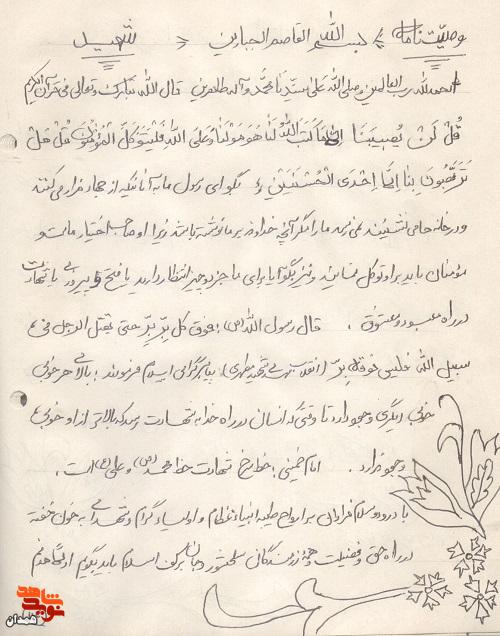 وصیتنامه بسم الله القاصم الجبارین شهید
الحمدلله رب العالمین وصلی الله علی سیدنا محمد وآله طاهرین قال الله تبارک وتعالی فی قرآن الکریم
قُل لَنْ یُصیبَنَا اِلّا مَا کَتَبَ اللهُ لَنَا هُوَ مَوْلَنَا وَعَلَی اللهِ فَلْیَتَوَکَّلِ الْمُؤمِنُونَ قُلْ هَلْ
تَرَبَّصُونَ بِنَا اِلّا اِحْدَی الْحُسْنَیَیْنِ بگو ای رسول ما به آنانیکه از جهاد فرار می کنند
ودرخانه ها می نشینند نمی رسد ما را مگر آنچه خداوند بر ما نوشته باشد زیرا او صاحب اختیار ماست و
مؤمنان باید براو توکل نمایند ونیز بگو آیا برای ما جز دو چیز انتظار دارید یا فتح و پیروزی یا شهادت
در راه معبود و معشوق . قال رسول الله (ص) : فوق کل برّ برّ حتی یقتل الرجل فی
سبیل الله فلیس فوقه برّ (انقلاب شهید مطهری) پیامبر گرامی اسلام فرمودند : بالای هر خوبی
خوبی دیگری وجود دارد تا وقتی که انسان در راه خدا به شهادت برسد که بالاتر از او خوبی
وجود ندارد . امام خمینی : خط سرخ شهادت خط محمد (ص) و علی (ع) است .
با درود و سلام فراوان بر ارواح طیبه انبیاء عظام و اولیاء گرام و شهدای به خون خفته
در راه حق و فضیلت و همه رزمندگان سلحشور و جان برکف اسلام باید بگویم اولاً هدفم
نوید شاهد
همدان